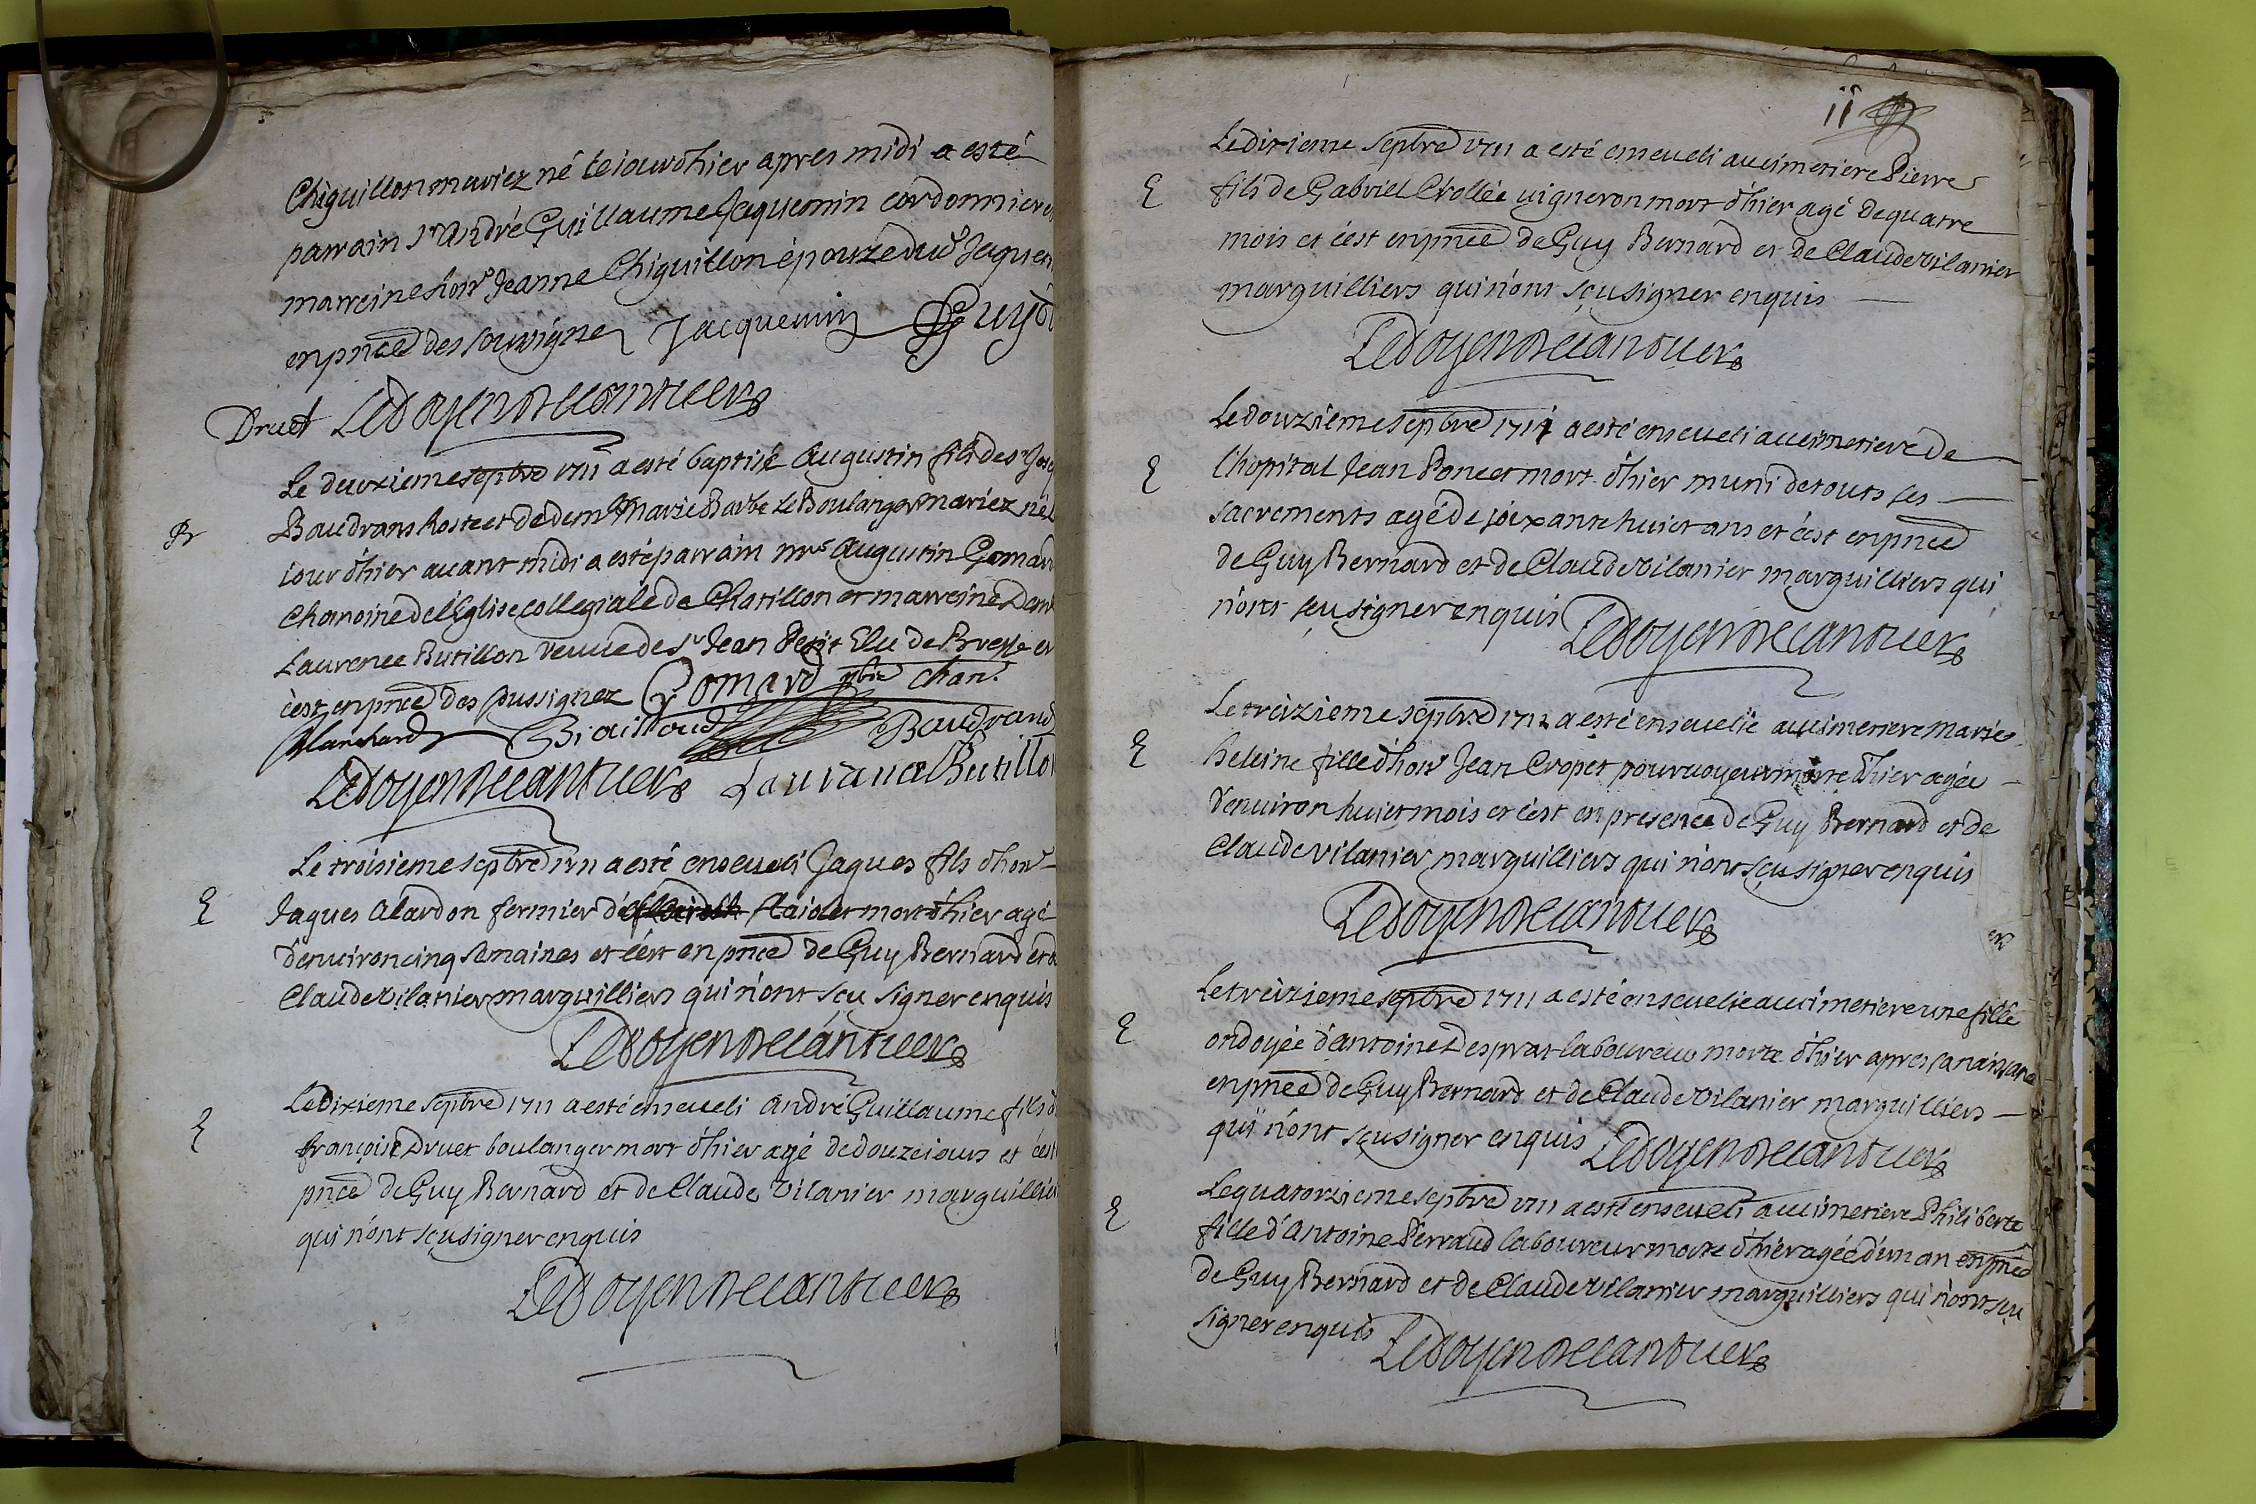 Chiguillon mariez né le iour d'hier apres midi a esté
parrain sr André Guillaume Jaquemin cordonnier
marreine honr Jeanne Chiguillon épouze
en pnce des soussignez Jacquemin
Druet Ledoyen
Le deuxieme septbre 1711 a esté baptisé Augustin fils de sr
Br Baudrans hoste et de dem Marie Barbe Le Boulanger mariez né
iour d'hier auant midi a esté parrain mre Augustin Gomard
Chanoine de l'Eglise collegiale de Chatillon et marreine
Laurence Butillon veuue de sr Jean Petit Elu de Bresse et
c'est en pnce des soussignez Gomard pbre chan.
Blanchard Biaittoud Baudrand
Ledoyen Laurance Butillon
Le troisieme septbre 1711 a esté enseueli Jaques fils d'honr
E Jaques Alardon fermier mort d'hier agé
d'enuiron cinq semaines et c'est en pnce de Guy Bernard et
Claude Vilanier marguilliers qui n'ont sçu signer enquis
Ledoyen
Le dixieme septbre 1711 a esté enseueli André Guillaume fils
E françois Druet boulanger mort d'hier agé de douze iours et c'est
pnce de Guy Bernard et de Claude Vilanier marguilliers
qui n'ont sçu signer enquis
Ledoyen
11
Le dixieme septbre 1711 a esté enseueli au cimetiere Pierre
E fils de Gabriel Crollée uigneron mort d'hier agé de quatre
mois et c'est en pnce de Guy Bernard et de Claude Vilanier
marguilliers qui n'ont sçu signer enquis
Ledoyen
Le douzieme septbre 1711 a esté enseueli au cimetiere de
E l'hopital Jean Poncet mort d'hier muni de touts ses
sacrements agé de soixante huict ans et c'est en pnce
de Guy Bernard et de Claude Vilanier marguilliers qui
n'ont sçu signer enquis Ledoyen
Le treizieme septbre 1711 a esté enseuelie au cimetiere Marie
E heleine fille d'honr Jean Cropet pouruoyeur morte d'hier agée
d'enuiron huict mois et c'est en presence de Guy Bernard et de
Claude Vilanier marguilliers qui n'ont sçu signer enquis
Ledoyen
Le treizieme septbre 1711 a esté enseuelie au cimetiere une fille
E ondoyée d'Antoine Desprat laboureur morte d'hier apres sa naissance
en pnce de Guy Bernard et de Claude Vilanier marguilliers
qui n'ont sçu signer enquis Ledoyen
Le quatorzieme septbre 1711 a esté enseueli au cimetiere Philiberte
E fille d'Antoine Perraud laboureur morte d'hier agée d'un an en pnce
de Guy Bernard et de Claude Vilanier marguilliers qui n'ont sçu
signer enquis Ledoyen